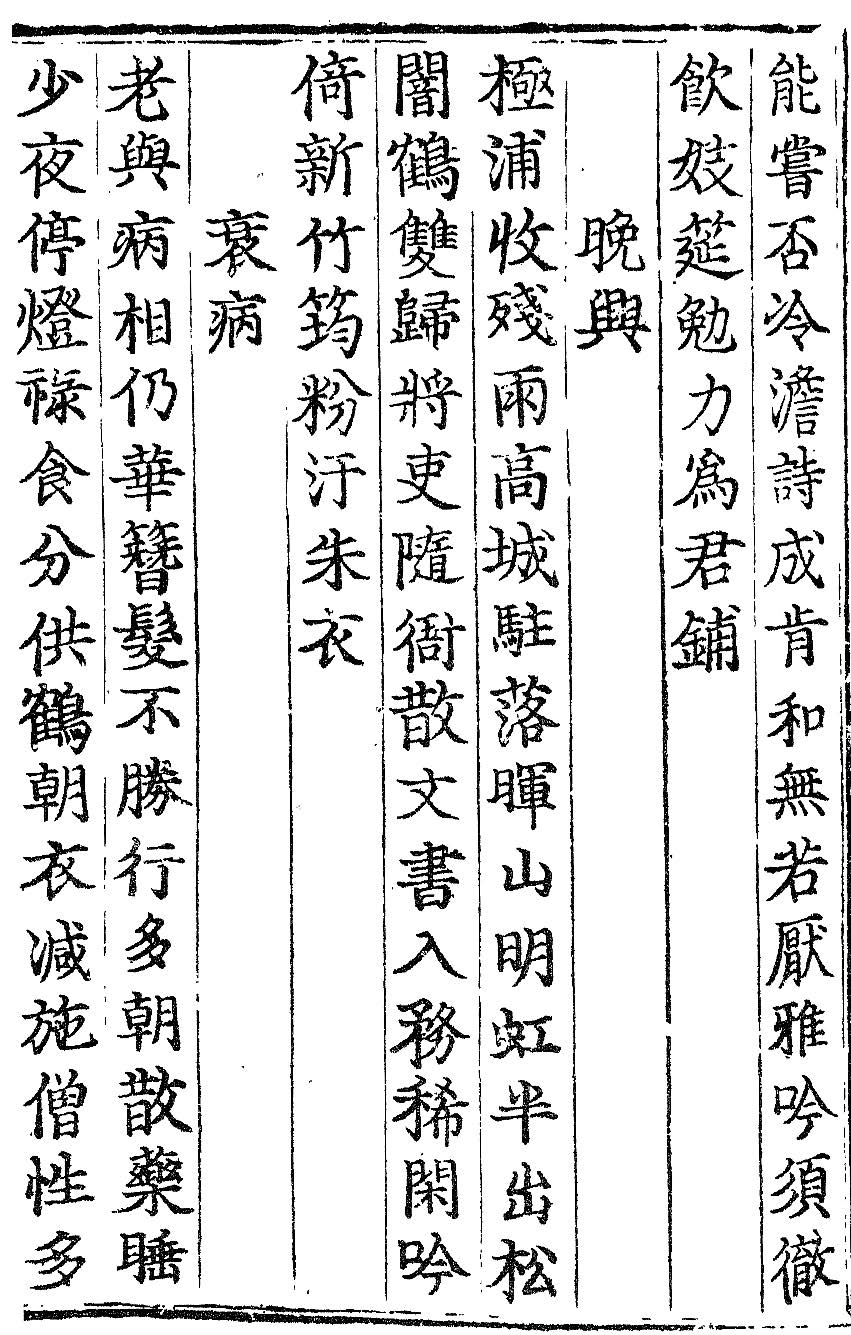 能嘗否冷澹詩成肯和無若厭雅吟須徹
飲妓莚勉力爲君鋪
晚興
極浦收殘雨高城駐落暉山明虹半出松
闇鶴雙歸將吏隨衙散文書入務稀閑吟
倚新竹筠粉汙朱衣
衰病
老與病相仍華簪髮不勝行多朝散藥睡
少夜停燈祿食分供鶴朝衣減施僧性多